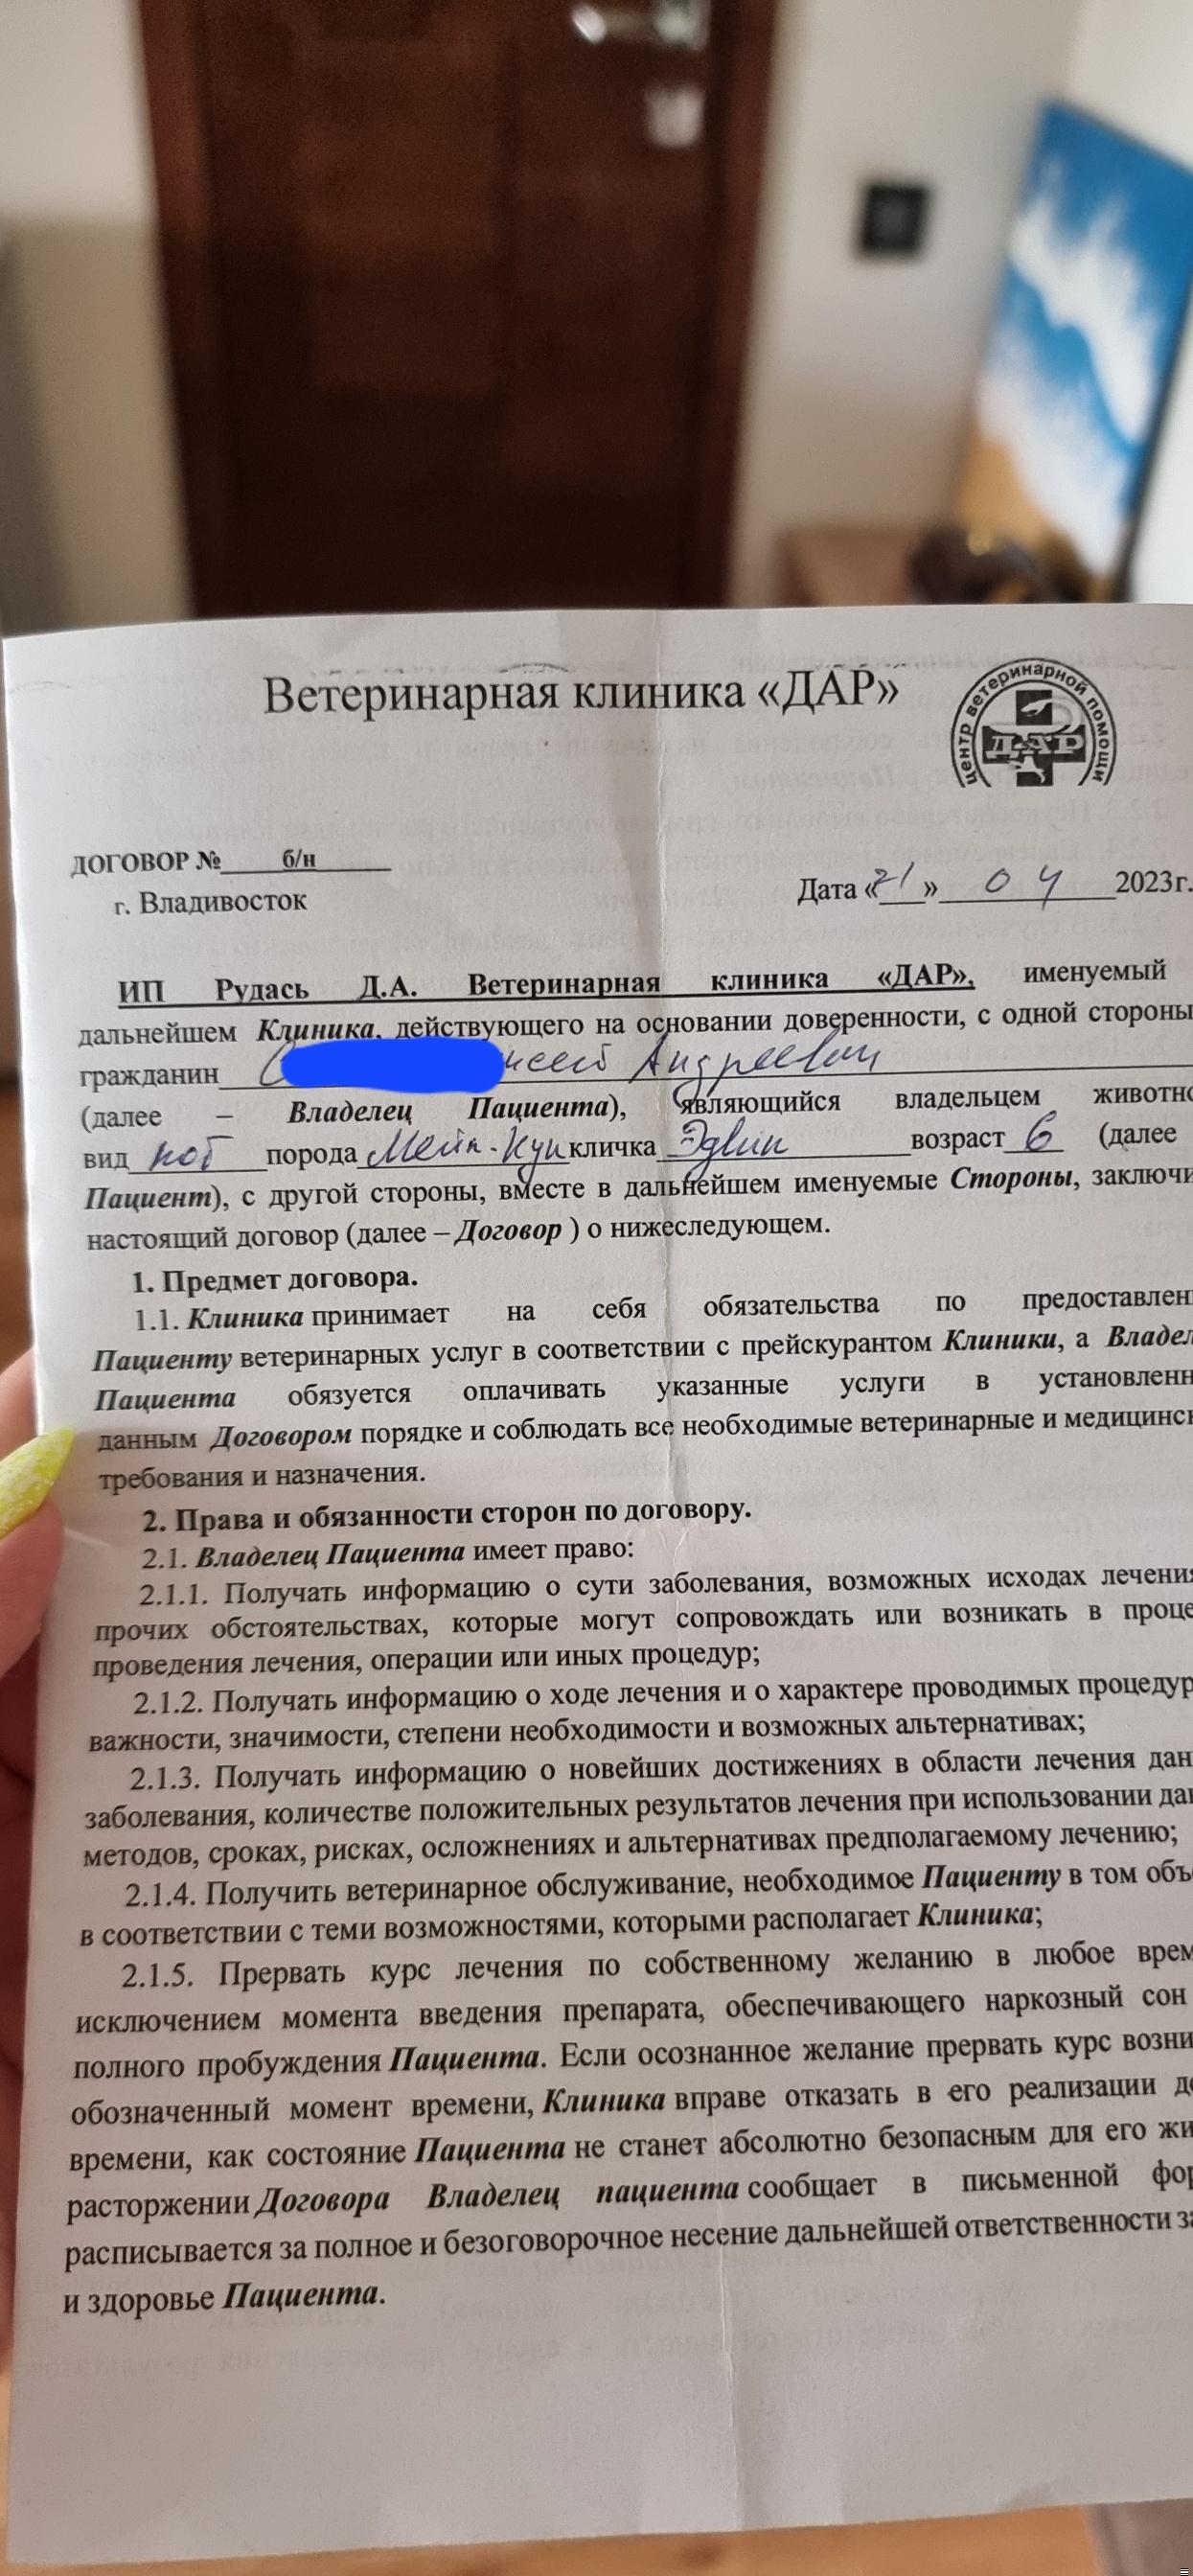 Ветеринарная клиника «ДАР»
центр ветеринарной помощи
ДАР
ДОГОВОР № б/н
г. Владивосток
Дата «21» 04 2023г.
ИП Рудась Д.А. Ветеринарная клиника «ДАР», именуемый
дальнейшем Клиника, действующего на основании доверенности, с одной стороны
гражданин Андреевич
(далее – Владелец Пациента), являющийся владельцем животно
вид кот порода Мейн-Кун кличка Эдвин возраст 6 (далее
Пациент), с другой стороны, вместе в дальнейшем именуемые Стороны, заключи
настоящий договор (далее – Договор ) о нижеследующем.
1. Предмет договора.
1.1. Клиника принимает на себя обязательства по предоставлен
Пациенту ветеринарных услуг в соответствии с прейскурантом Клиники, а Владел
Пациента обязуется оплачивать указанные услуги в установленн
данным Договором порядке и соблюдать все необходимые ветеринарные и медицинск
требования и назначения.
2. Права и обязанности сторон по договору.
2.1. Владелец Пациента имеет право:
2.1.1. Получать информацию о сути заболевания, возможных исходах лечения
прочих обстоятельствах, которые могут сопровождать или возникать в проце
проведения лечения, операции или иных процедур;
2.1.2. Получать информацию о ходе лечения и о характере проводимых процедур
важности, значимости, степени необходимости и возможных альтернативах;
2.1.3. Получать информацию о новейших достижениях в области лечения дан
заболевания, количестве положительных результатов лечения при использовании дан
методов, сроках, рисках, осложнениях и альтернативах предполагаемому лечению;
2.1.4. Получить ветеринарное обслуживание, необходимое Пациенту в том объ
в соответствии с теми возможностями, которыми располагает Клиника;
2.1.5. Прервать курс лечения по собственному желанию в любое врем
исключением момента введения препарата, обеспечивающего наркозный сон
полного пробуждения Пациента. Если осознанное желание прервать курс возни
обозначенный момент времени, Клиника вправе отказать в его реализации до
времени, как состояние Пациента не станет абсолютно безопасным для его жи
расторжении Договора Владелец пациента сообщает в письменной фор
расписывается за полное и безоговорочное несение дальнейшей ответственности за
и здоровье Пациента.